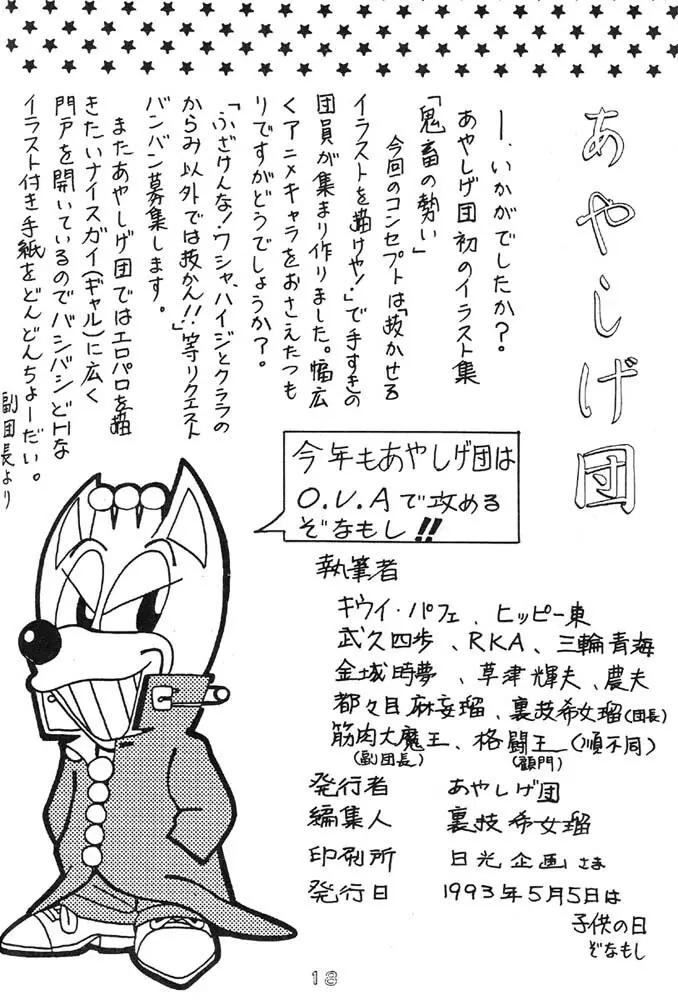 あやしげ団
一、いかがでしたか？
あやしげ団初のイラスト集
「鬼畜の勢い」
今回のコンセプトは「抜かせる
イラストを描けや！」で手すきの
団員が集まり作りました。幅広
くアニメキャラをおさえたつも
りですがどうでしょうか？。
「ふざけんな！ワシャ、ハイジとクララの
からみ以外では抜かん!!」等リクエスト
バンバン募集します。
またあやしげ団ではエロパロを描
きたいナイスガイ(ギャル)に広く
門戸を開いているのでバシバシどHな
イラスト付き手紙をどんどんちょーだい。
副団長より
今年もあやしげ団は
O.V.Aで攻める
ぞなもし!!
執筆者
キウイ・パフェ、ヒッピー東
武久四歩、RKA、三輪青海
金城時夢、草津輝夫、農夫
都々目麻妄瑠、裏技希女瑠(団長)
筋肉大魔王、格闘王(順不同)
(副団長) (顧門)
発行者 あやしげ団
編集人 裏技希女瑠
印刷所 日光企画さま
発行日 1993年5月5日は
子供の日
ぞなもし
18